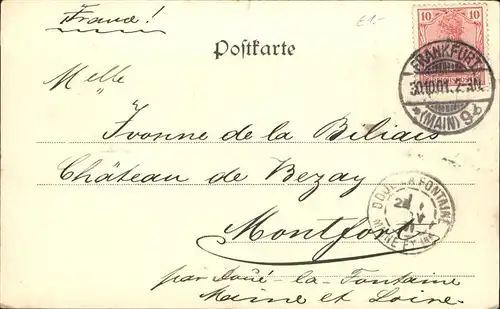 France!
£1.-
10
Postkarte
FRANKFURT
30.10.01.
*(MAIN)9b
Melle
Yvonne de la Biliais
Château de Bezay
DOUÉ-LA-FONTAINE
MAINE ET
Montfort
par Doué-la-Fontaine
Maine et Loire